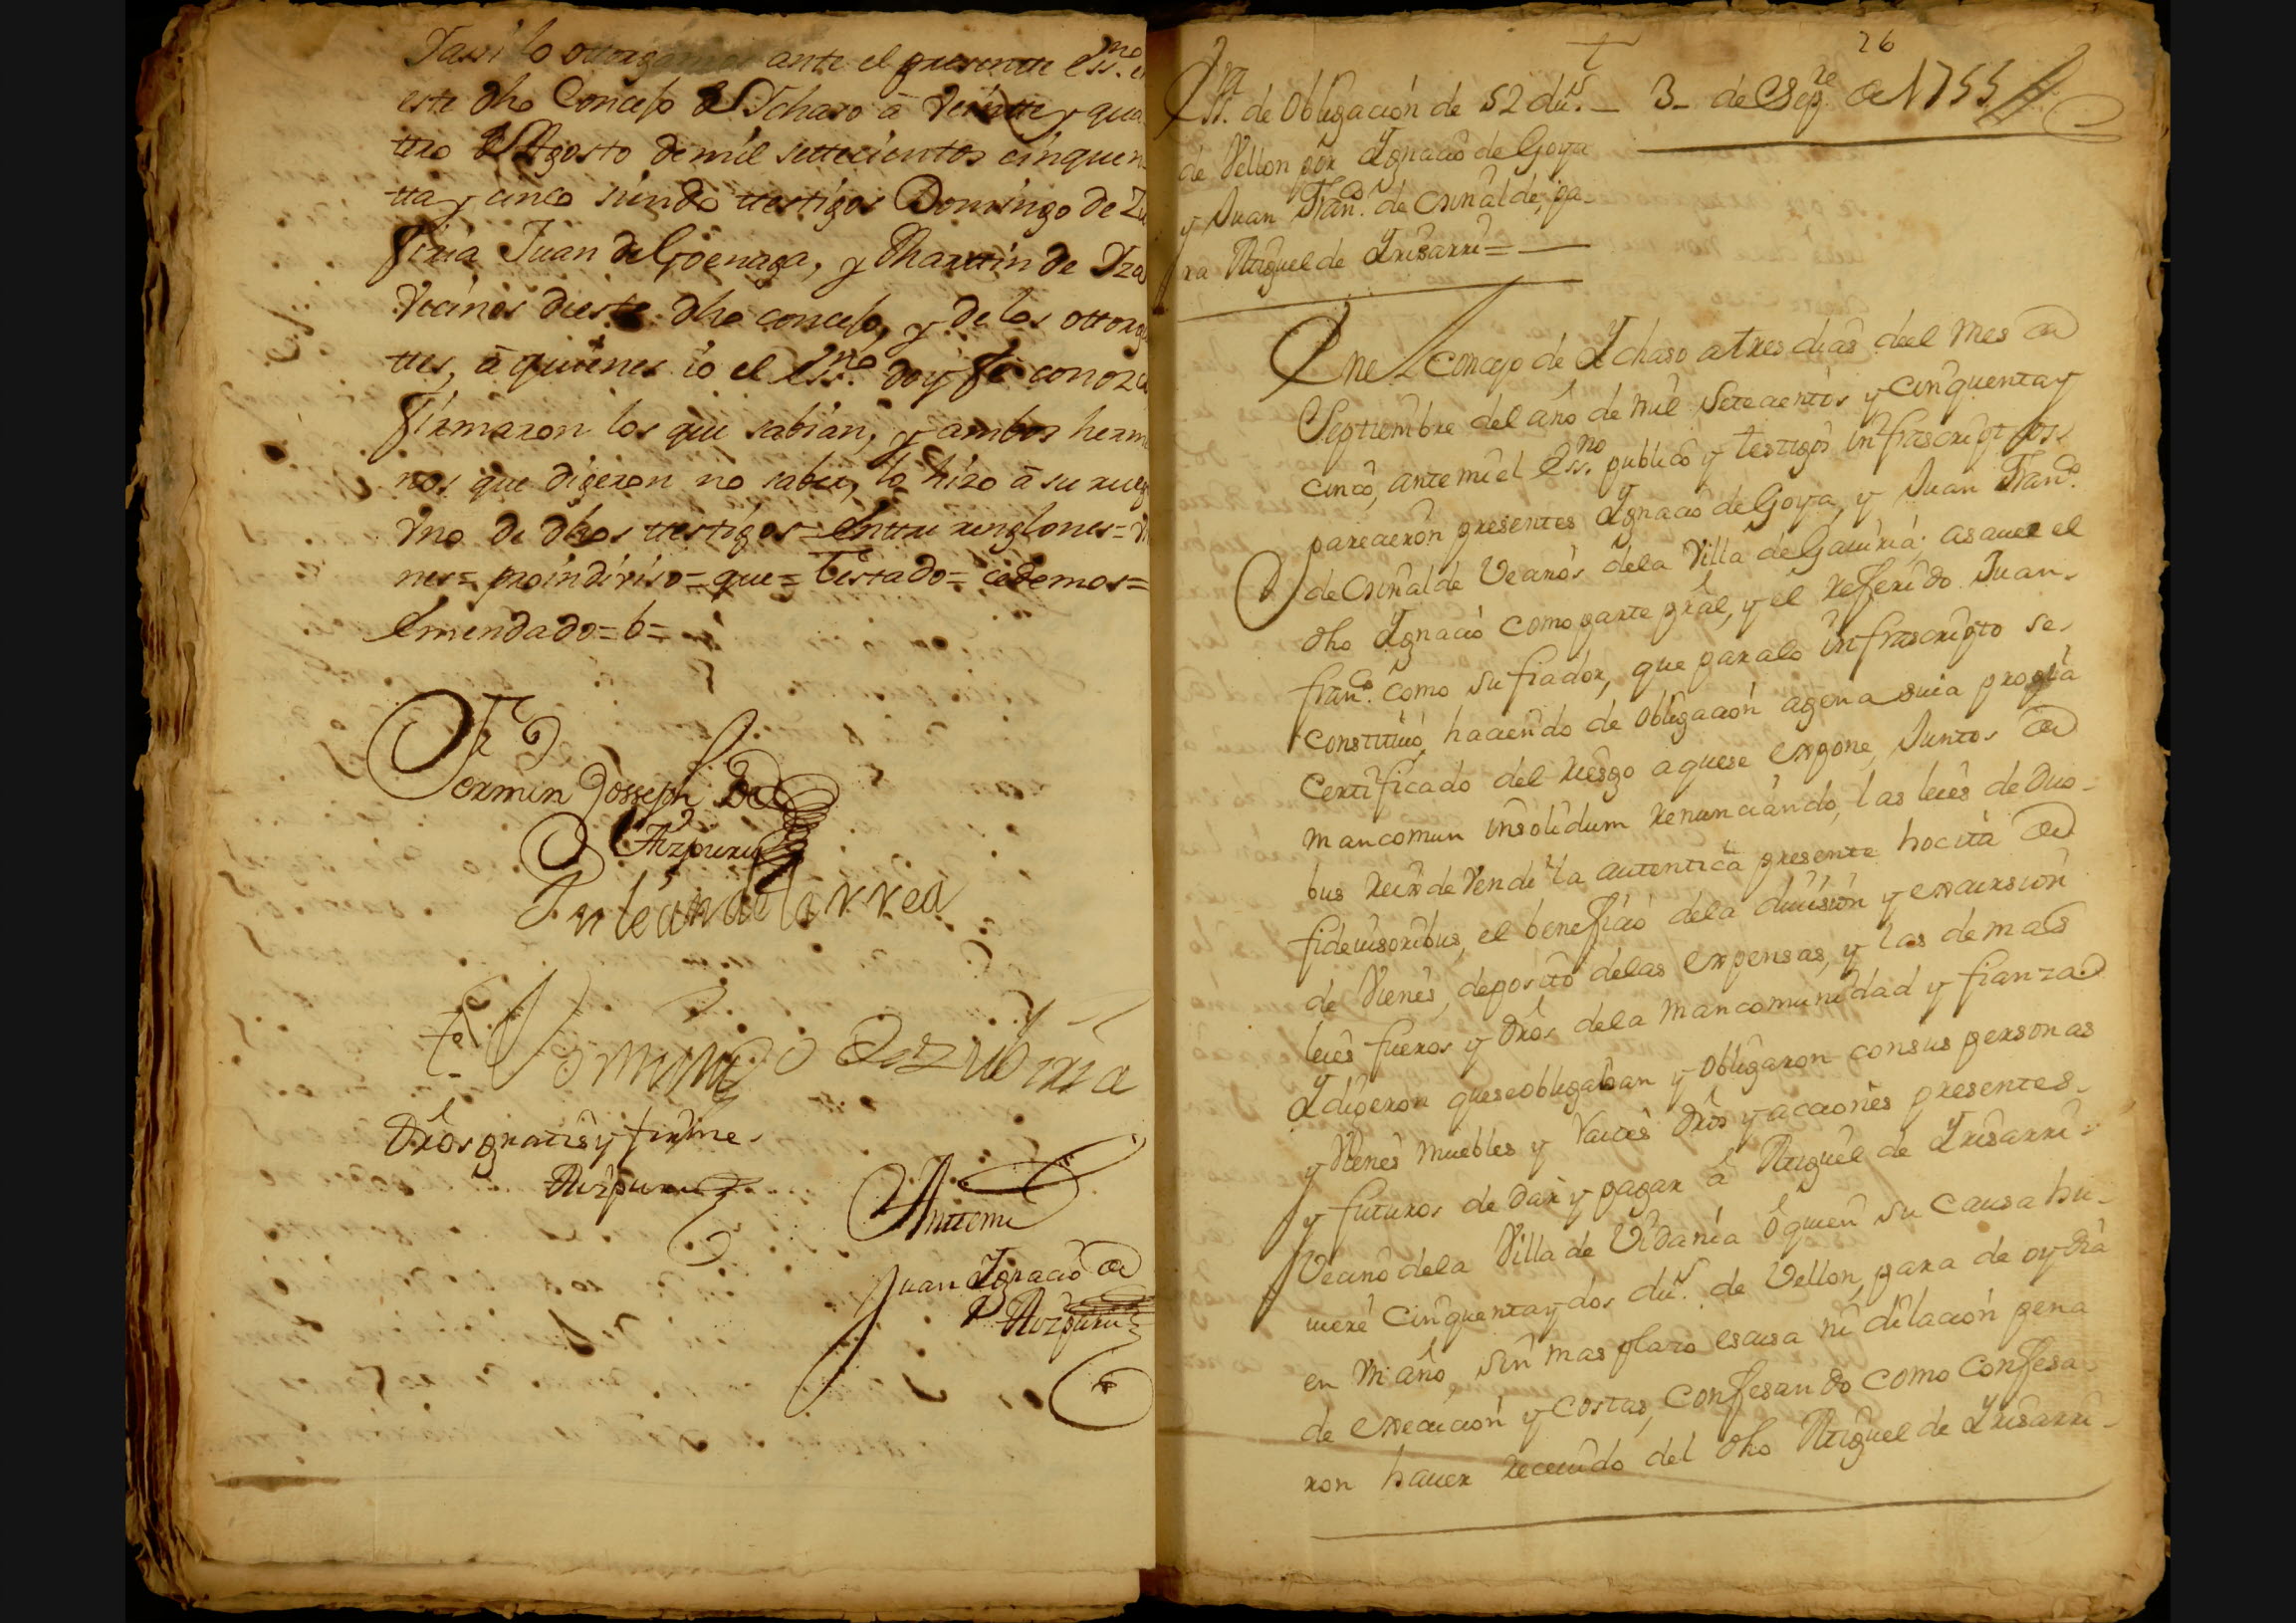 Yassi lo otorgamos ante el presente ess.no en
este dho Concejo de Ichaso â veintte y qua
ttro de Agosto de mil settecientos cinquen
tta y cinco siendo ttestigos Domingo de Zu
firia Juan de Goenaga, y Martin de Yza
Vecinos dieste dho concejo, y de los ottorgan
ttes, â quienes io el ess.no doy fe conozco
firmaron los que sabian, y ambos herma
nos que digeron no saber, lo hizo â su ruego
Vno de dhos ttestigos = Enttre renglones =
nes = proindiviso = que = Testado = cedemos =
Emendado = b =
Fermin Josseph De
Aizpuru
Julian de larrea
t.o Domingo de zubiria
Dros gratis y firme
Aizpuru
Anttemi
Juan Ignacio de
Aizpuru
26
Ess.ra de Obligacion de 52 du.s 3 de Sep.re de 1755
de Vellon por Ignacio de Goya
y Juan Fran.co de Crinalde, pa
ra Miguel de Irisarri =
En el concejo de Ichaso a tres dias del mes de
Septiembre del año de mil Setecientos y cinquenta y
cinco, ante mi el Ess.no publico y testigos infrascriptos
parecieron presentes Ignacio de Goya, y Juan Fran.co
de Crinalde Vecinos dela Villa de Gaviria; asaver el
dho Ignacio como parte pral, y el referido Juan
fran.co como su fiador, que para lo infrascripto se
constituió, haciendo de obligacion agena suia propia
Certificado del riesgo a que se expone, Juntos de
mancomun insolidum renunciando, las leies de Duo
bus rex de vendi la autentica presente hocita de
fideiusoribus, el beneficio dela division y excursion
de Vienes, deposito delas expensas, y las demas
leies fueros y dros dela mancomunidad y fianza
I digeron que se obligaban y obligaron con sus personas
y Vienes muebles y raices dros y acciones presentes
y futuros de dar y pagar â Miguel de Irisarri
Vecino dela Villa de Vidania ô quien su causa hu
viere Cinquenta y dos du.s de Vellon, para de oy dia
en vn año sin mas plazo escusa ni dilacion pena
de execucion y costas, confesando como confesa
ron haver recevido del dho Miguel de Irisarri